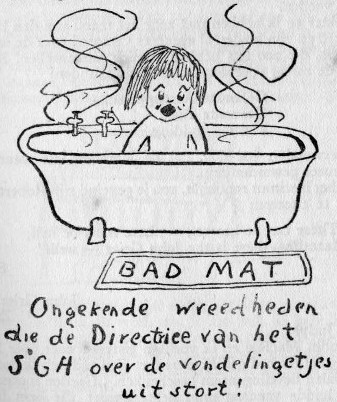 BAD MAT
Ongekende wreedheden
die de Directriee van het
S'GH over de vondelingetjes
uitstort!